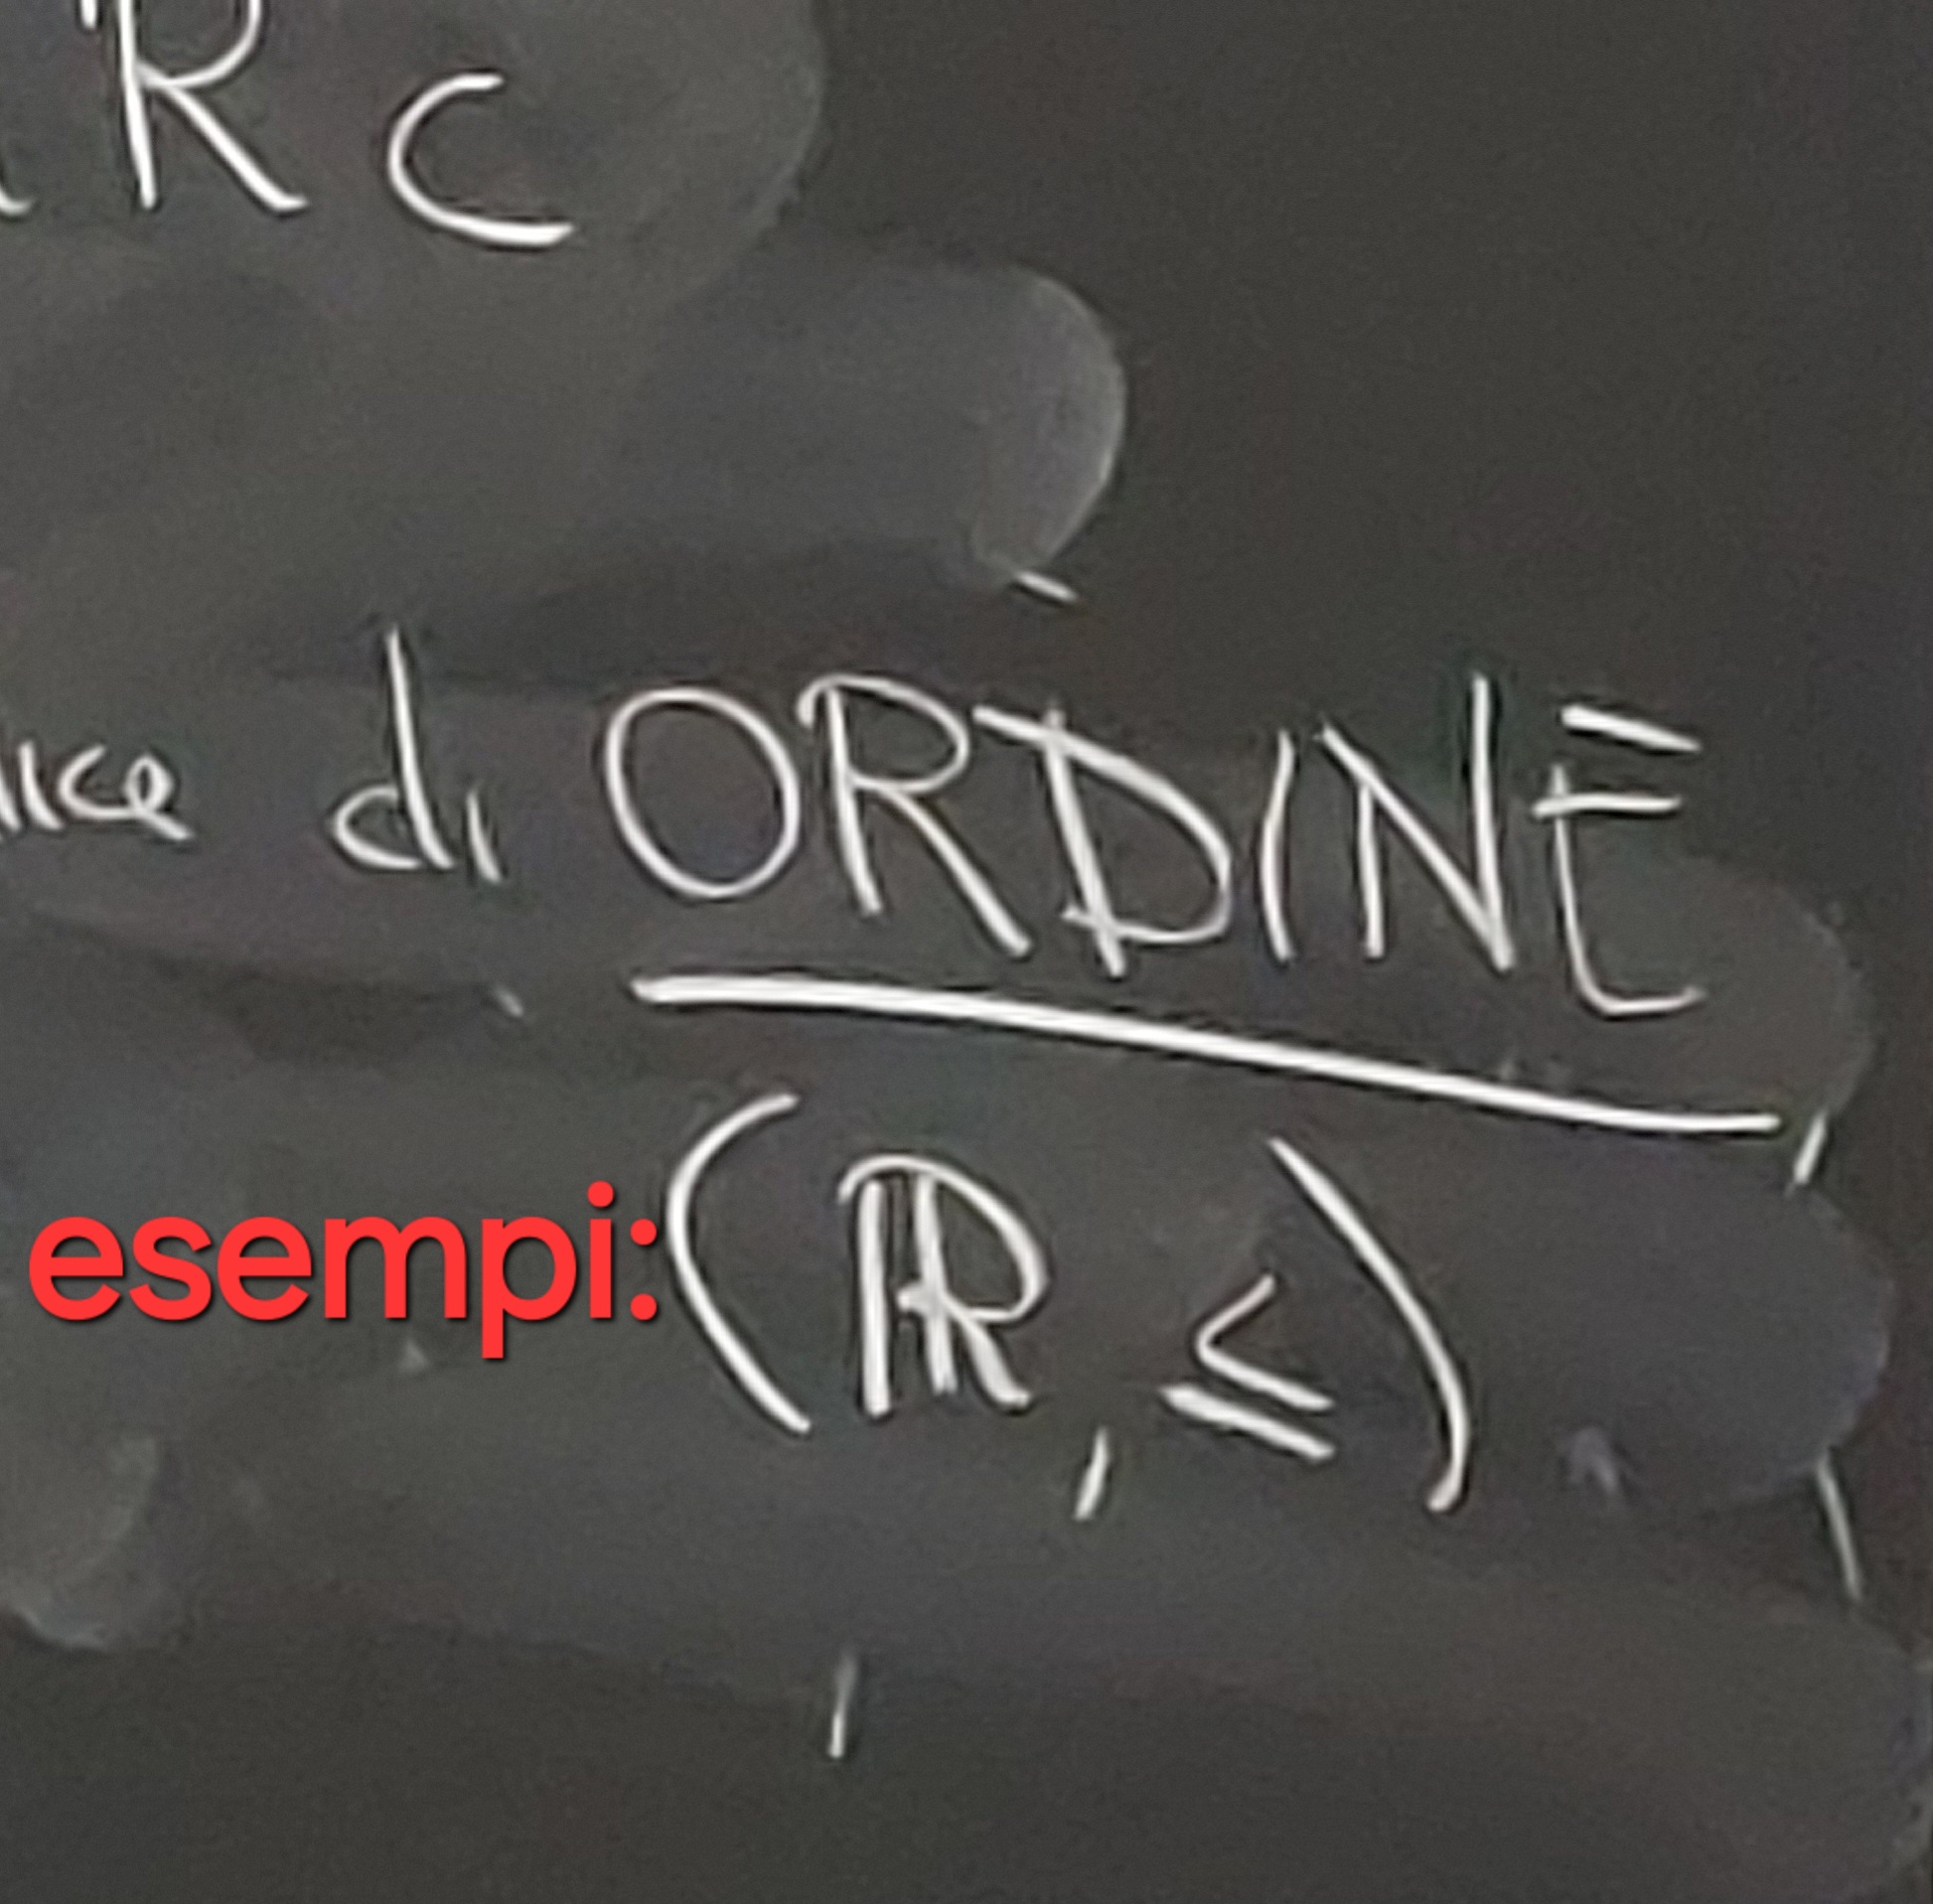 R c
di ORDINE
esempi: (ℝ, ≤)